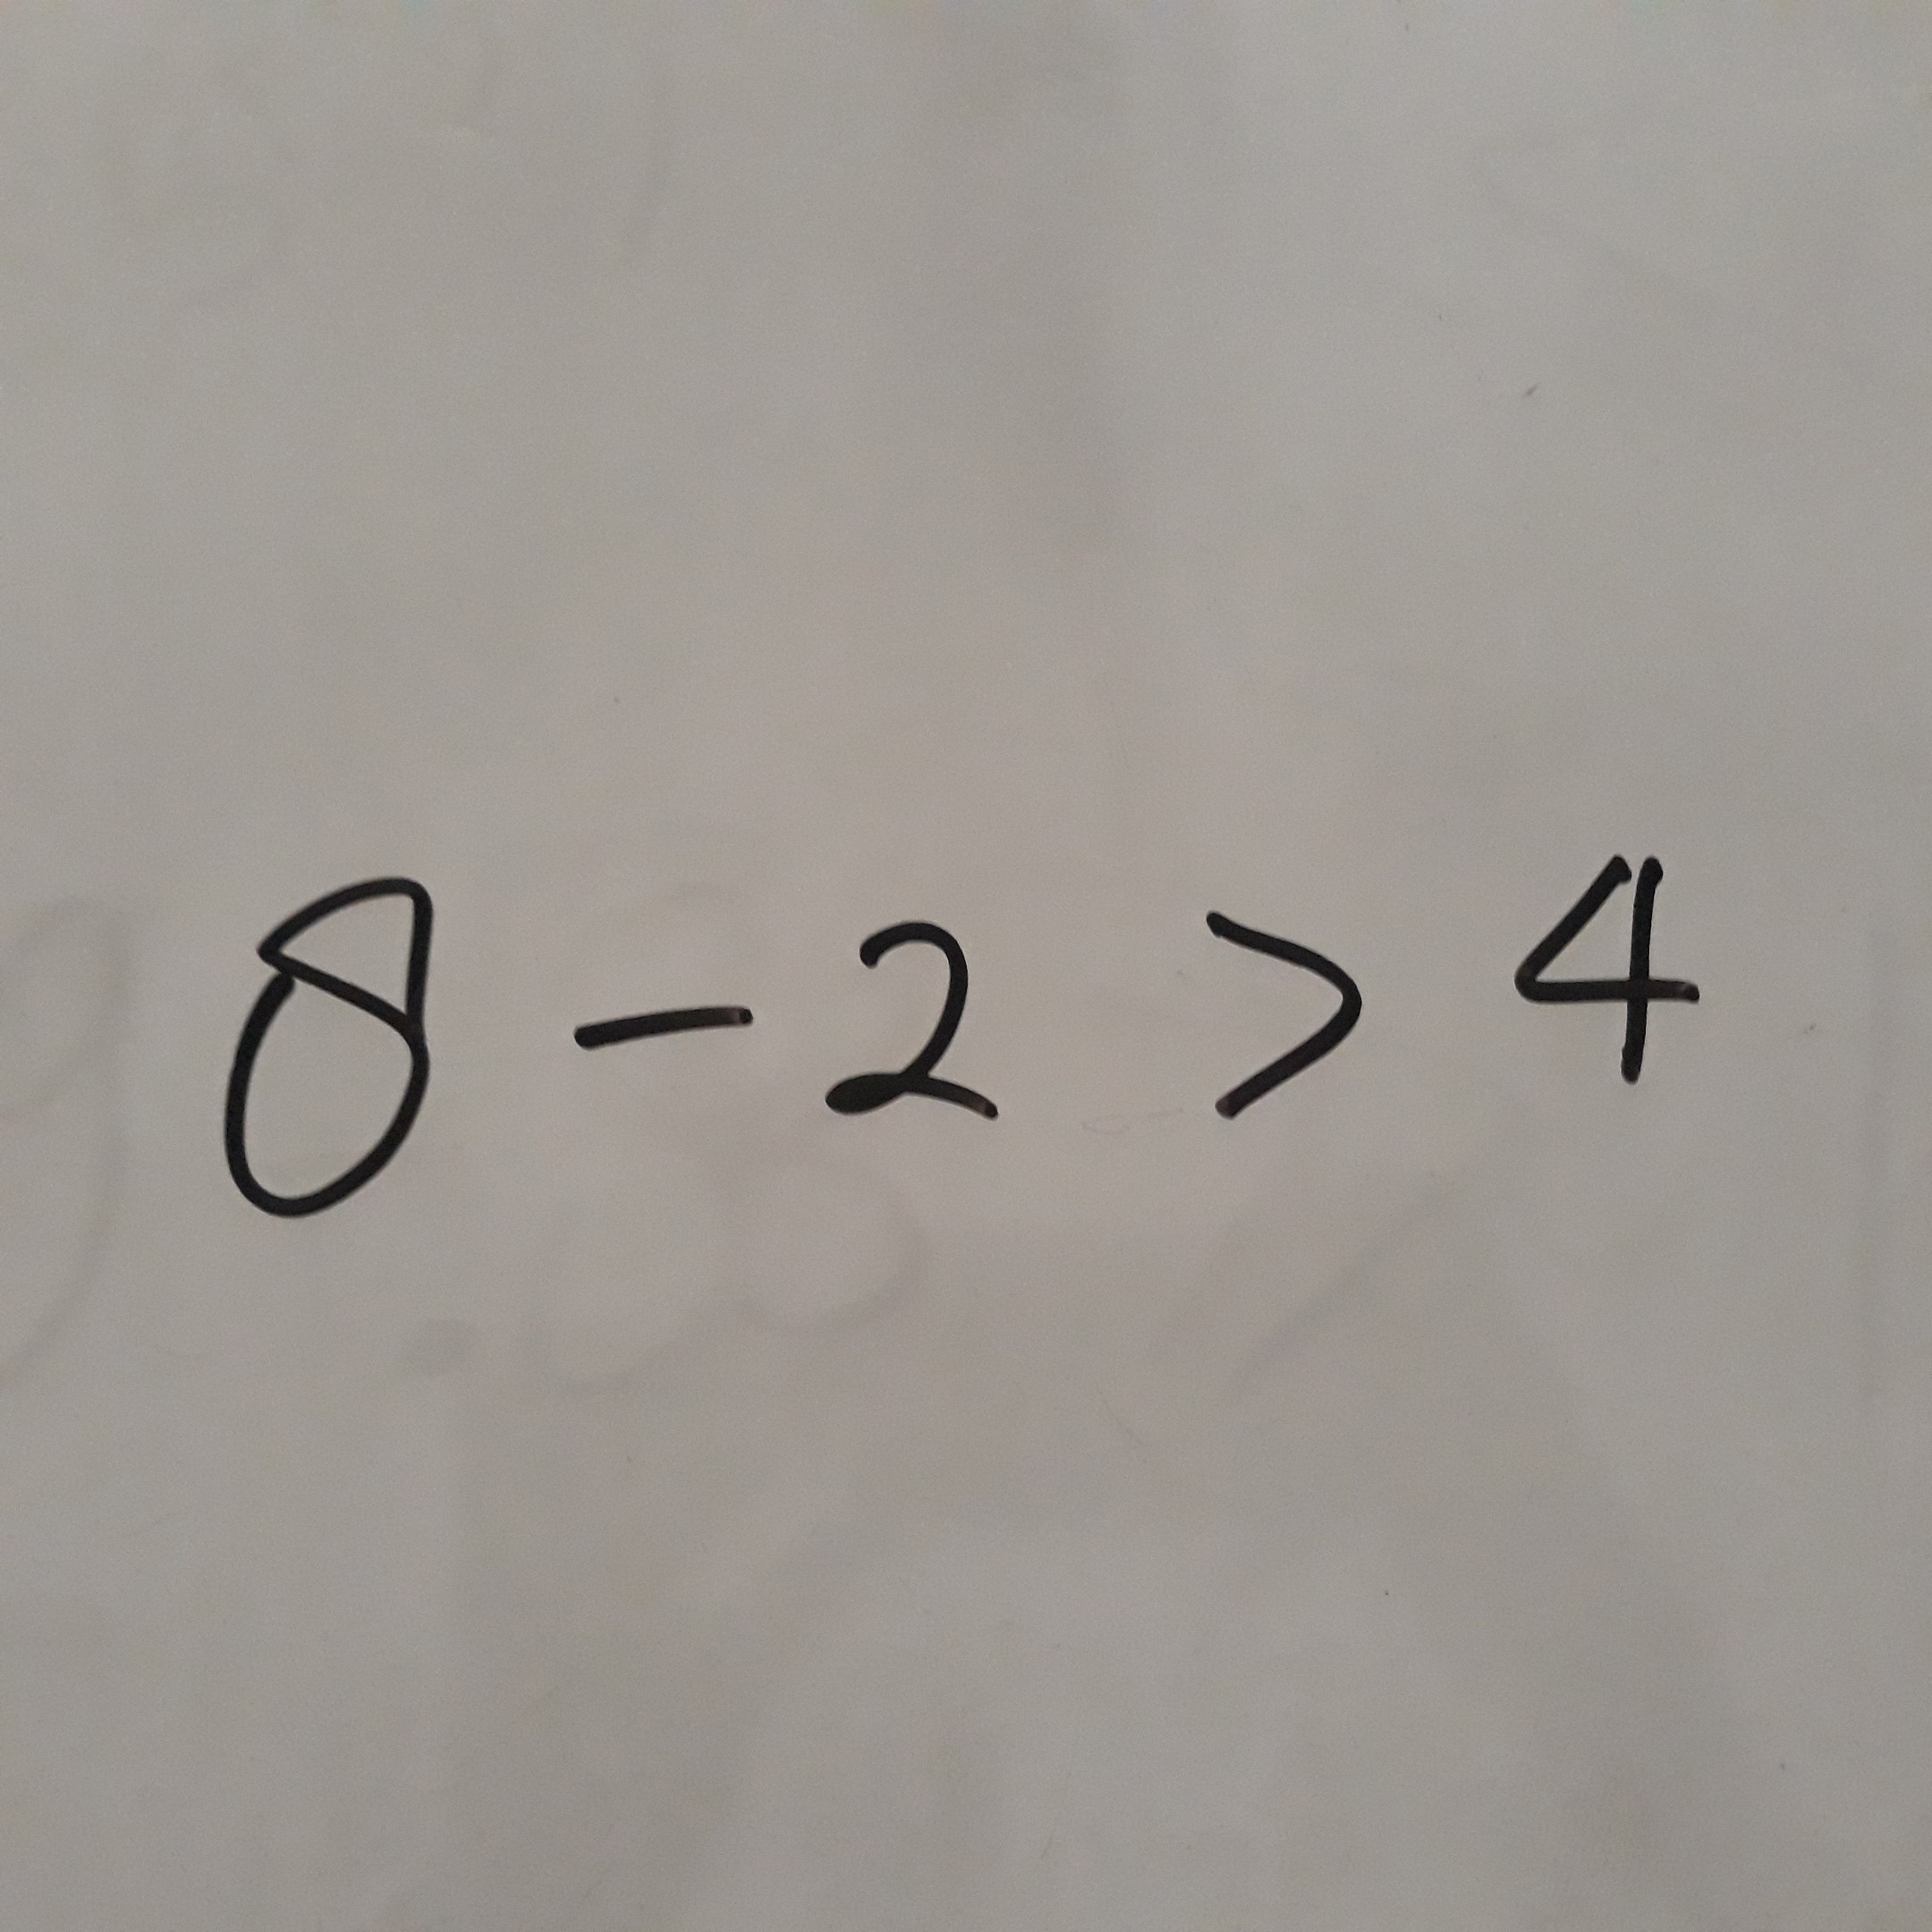 8 - 2 > 4